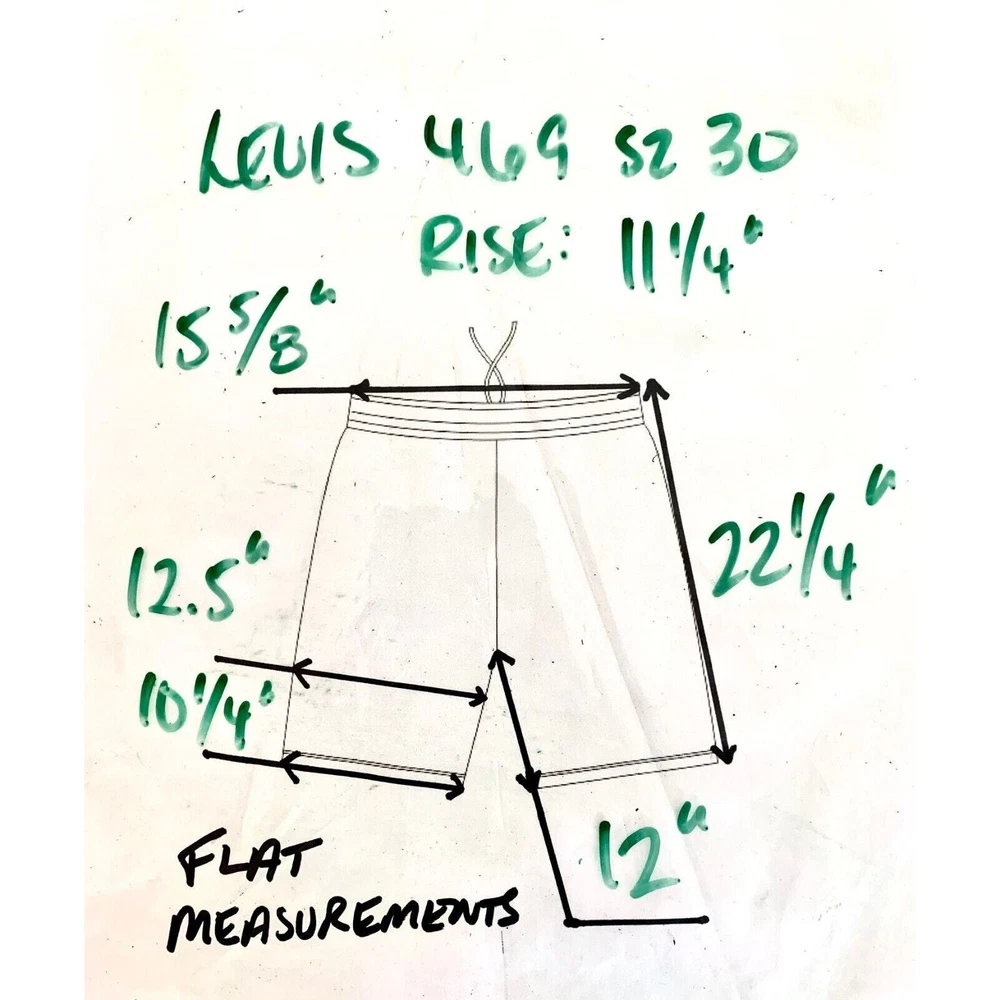 LEVIS 469 SZ 30
RISE: 11 1/4"
15 5/8"
22 1/4"
12.5"
10 1/4"
12"
FLAT
MEASUREMENTS